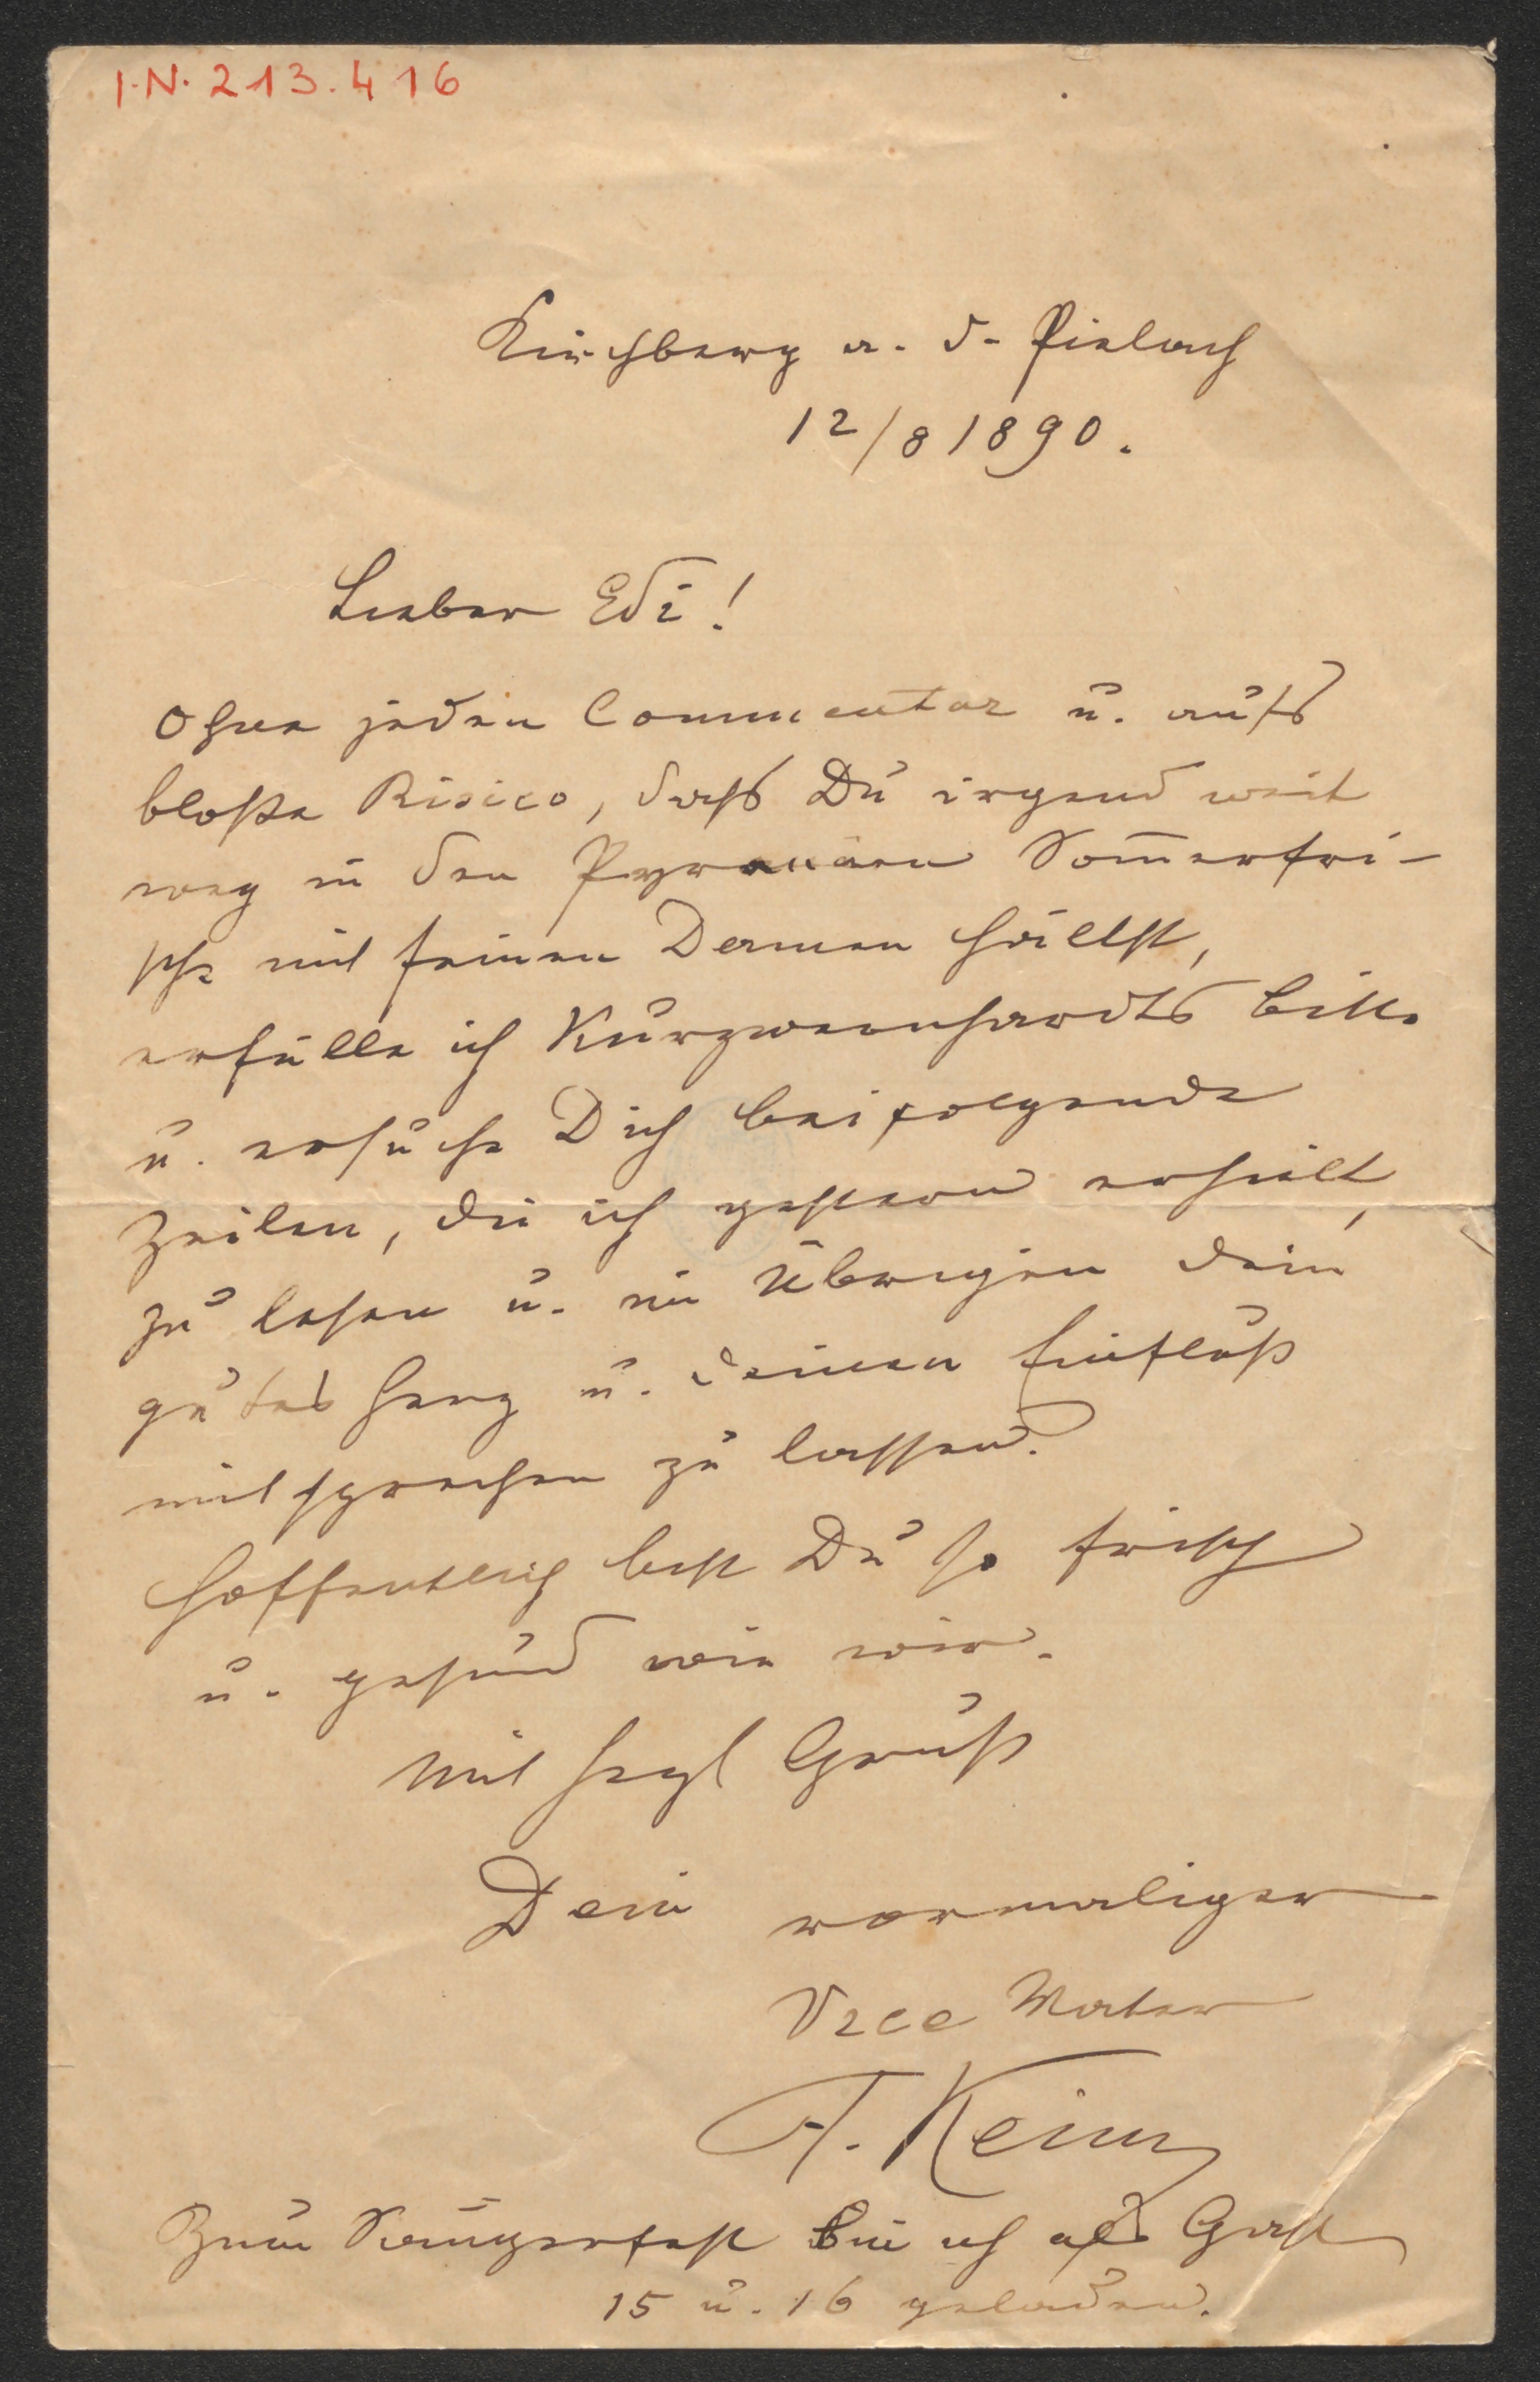 I.N. 213.416
Kirchberg a. d. Pielach
12/8 1890.
Lieber Edi!
Ohne jeden Commentar u. aufs
bloße Risico, daß Du irgend weit
weg in den Pyrenäen Som̄erfri-
sche mit feinen Damen hältst,
erfülle ich Bitte
u. ersuche Dich beifolgende
Zeilen, die ich gestern erhielt,
zu lesen u. im Übrigen dein
gutes Herz u. deinen Einfluß
mitsprechen zu lassen.
Hoffentlich bist Du so frisch
u. gesund wie wir.
Mit hzgl Gruß
Dein vormaliger
Vice Mater
A. Keim
Zum Sängerfest bin ich als Gast
15 u. 16 geladen.